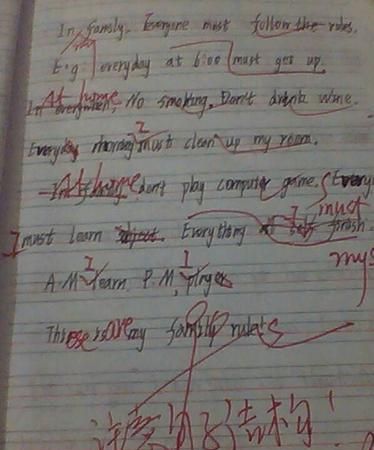 In family. Everyone must follow the rules.
E.g. everyday at 6:00 must get up.
At home
In evryman, No smoking. Don't drink wine.
Everyday morning I must clean up my room.
At home don't play computer game. (Every
must
I must learn object. Everything finish.
mys
I I
A.M learn P.M play
These are my family rules
注意句子结构!